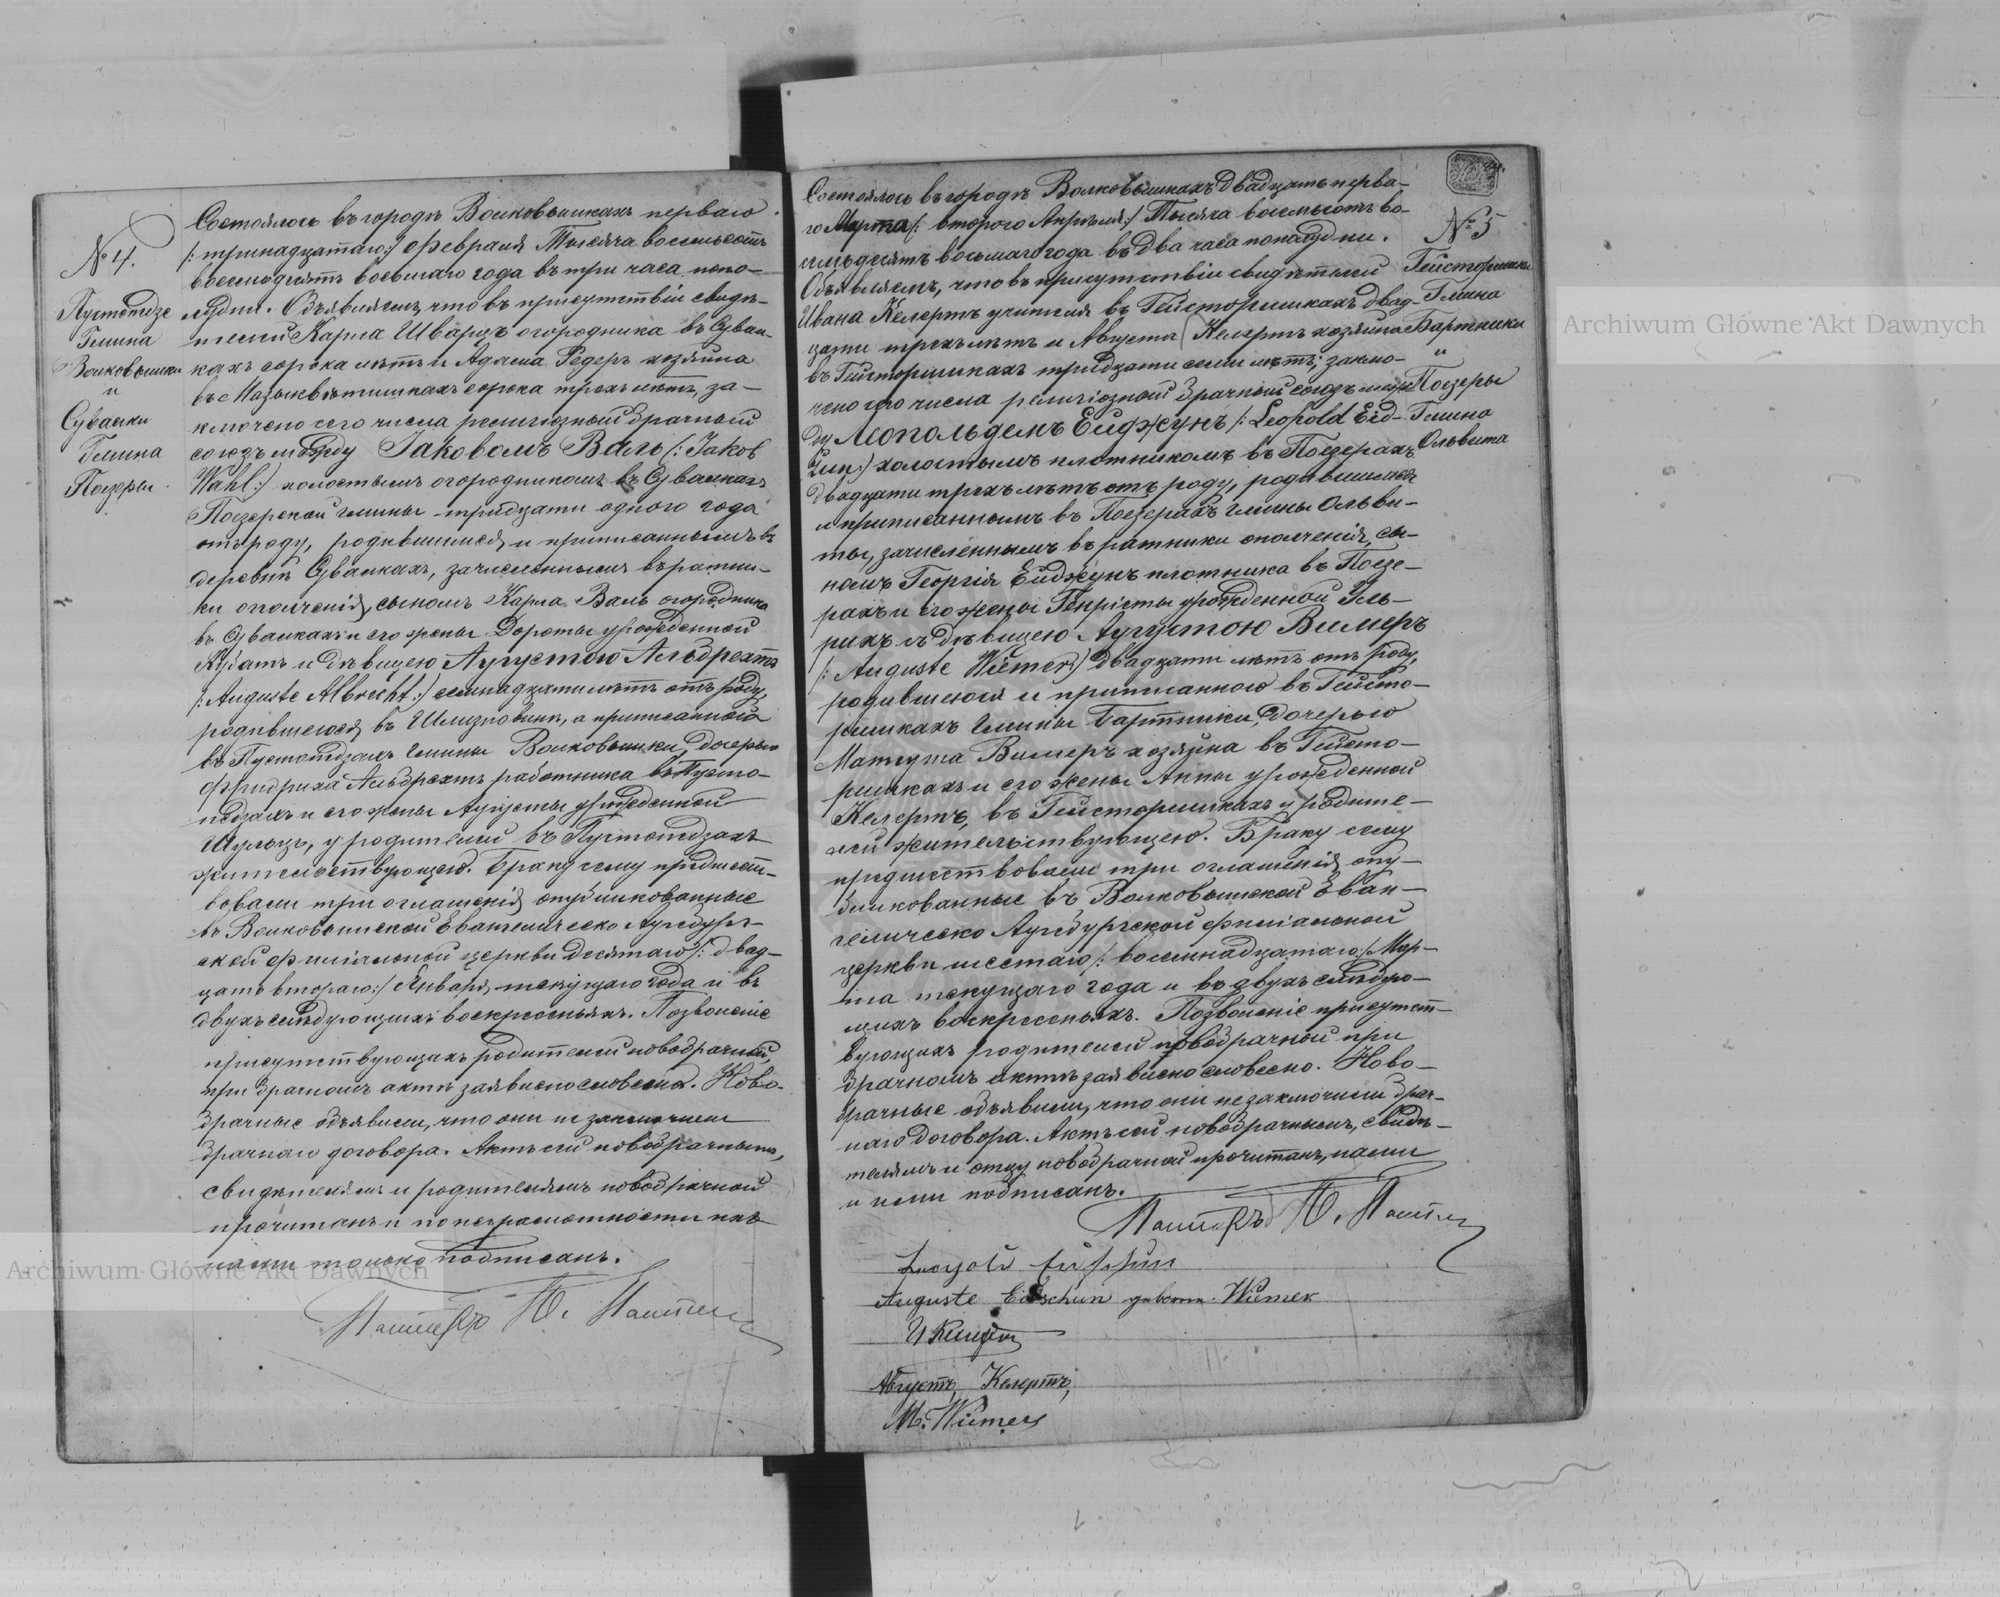 № 4.
Пустопедзе
Гмина
Волковышки
и
Сувалки
Гмина
Поезеры
Состоялось въ городѣ Волковышкахъ перваго
/: тринадцатаго :/ Февраля Тысяча восемьсотъ
восемьдесятъ восьмаго года въ три часа попо-
лудни. Объявляемъ, что въ присутствіи свидѣ-
телей Карла Шварцъ огородника въ
кахъ сорока лѣтъ и Адама Редеръ хозяина
въ сорока трехъ лѣтъ, за-
ключено сего числа религіозный брачный
союзъ между Іаковомъ Валь /: Jakob
Wahl :/ холостымъ огородникомъ въ
Поезерской гмины тридцати одного года
отъ роду, родившимся и приписаннымъ въ
деревнѣ зачисленнымъ въ ратни-
ки ополченія, сыномъ Карла Валь огородника
въ и его жены Дороты урожденной
и дѣвицею Августою Альбрехтъ
/: Auguste Albrecht :/ семнадцати лѣтъ отъ роду,
родившеюся въ а приписанною
въ гмины Волковышки, дочерью
Фридриха Альбрехтъ работника въ Пусто-
педзахъ и его жены Августы урожденной
Шульцъ, у родителей въ Пустопедзахъ
жительствующею. Браку сему предшест-
вовали три оглашенія опубликованные
въ Волковышской Евангелическо Аугсбург-
ской филіальной церкви десятаго /: двад-
цать втораго :/ Января текущаго года и въ
двухъ слѣдующихъ воскресеньяхъ. Позволеніе
присутствующихъ родителей новобрачной,
при брачномъ актѣ заявлено словесно. Ново-
брачные объявили, что они не заключили
брачнаго договора. Актъ сей новобрачнымъ,
свидѣтелямъ и родителямъ новобрачной
прочитанъ и по неграмотности ихъ
нами только подписанъ.
Пасторъ
№ 5
Гейсторишки
Гмина
Бартники
и
Поезеры
Гмина
Ольвита
Состоялось въ городѣ Волковышкахъ двадцать перва-
го Марта /: втораго Апрѣля :/ Тысяча восемьсотъ во-
семьдесятъ восьмаго года въ два часа пополудни.
Объявляемъ, что въ присутствіи свидѣтелей
Ивана Келертъ учителя въ Гейсторишкахъ двад-
цати трехъ лѣтъ и Августа Келертъ хозяина
въ Гейсторишкахъ тридцати семи лѣтъ; заклю-
чено сего числа религіозный брачный союзъ меж-
ду Леопольдомъ Ейджунъ /: Leopold Eid-
:/ холостымъ плотникомъ въ Поезерахъ
двадцати трехъ лѣтъ отъ роду, родившимся
и приписаннымъ въ Поезерахъ гмины Ольви-
ты, зачисленнымъ въ ратники ополченія, сы-
номъ Георгія Ейджунъ плотника въ Поезе-
рахъ и его жены Генріеты урожденной Уль-
рихъ и дѣвицею Аугустою Вимеръ
/: Auguste Wiemer :/ двадцати лѣтъ отъ роду,
родившеюся и приписанною въ Гейсто-
ришкахъ гмины Бартники, дочерью
Матеуша Вимеръ хозяина въ Гейсто-
ришкахъ и его жены Анны урожденной
Келертъ, въ Гейсторишкахъ у родите-
лей жительствующею. Браку сему
предшествовали три оглашенія опу-
бликованные въ Волковышской Еван-
гелическо Аугсбургской филіальной
церкви шестаго /: восемнадцатаго :/ Мар-
та текущаго года и въ двухъ слѣдую-
щихъ воскресеньяхъ. Позволеніе присутст-
вующихъ родителей новобрачной при
брачномъ актѣ заявлено словесно. Ново-
брачные объявили, что они не заключили брач-
наго договора. Актъ сей новобрачнымъ, свидѣ-
телямъ и отцу новобрачной прочитанъ, нами
и ними подписанъ.
Пасторъ
Leopold
Auguste Eidschun geborne Wiemer
И Келертъ
Августъ Келертъ,
M. Wiemer
Archiwum Główne Akt Dawnych
Archiwum Główne Akt Dawnych